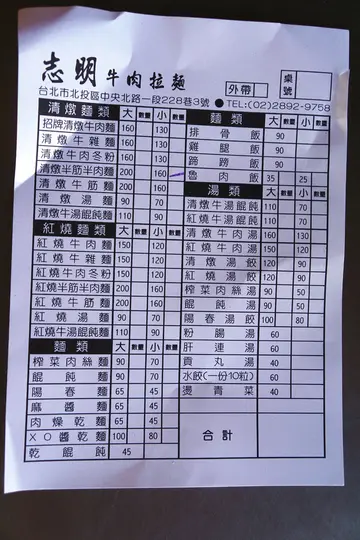 志明牛肉拉麵
外帶
桌號
台北市北投區中央北路一段228巷3號 ● TEL:(02)2892-9758
清燉麵類 大 數量 小 數量
招牌清燉牛肉麵 160 130
清燉牛雜麵 160 130
清燉牛肉冬粉 160 130
清燉半筋半肉麵 200 160
清燉牛筋麵 200 160
清燉湯麵 90 70
清燉牛湯餛飩麵 110 90
紅燒麵類 大 數量 小 數量
紅燒牛肉麵 150 120
紅燒牛雜麵 150 120
紅燒牛肉冬粉 150 120
紅燒半筋半肉麵 200 160
紅燒牛筋麵 200 160
紅燒湯麵 90 70
紅燒牛湯餛飩麵 110 90
麵類 大 數量 小 數量
榨菜肉絲麵 90 70
餛飩麵 90 70
陽春麵 65 45
麻醬麵 65 45
肉燥乾麵 65 45
XO醬乾麵 100 80
乾餛飩 45
麵類 大 數量 小 數量
排骨飯 90
雞腿飯 90
蹄膀飯 90
魯肉飯 35 25
湯類 大 數量 小 數量
清燉牛湯餛飩 110 90
紅燒牛湯餛飩 110 90
清燉牛肉湯 160 130
紅燒牛肉湯 150 120
清燉湯餃 120 90
紅燒湯餃 120 90
榨菜肉絲湯 50
餛飩湯 50
陽春湯餃 100 80
粉腸湯 40
肝連湯 40
貢丸湯 40
水餃(一份10粒) 60
燙青菜 40
合計